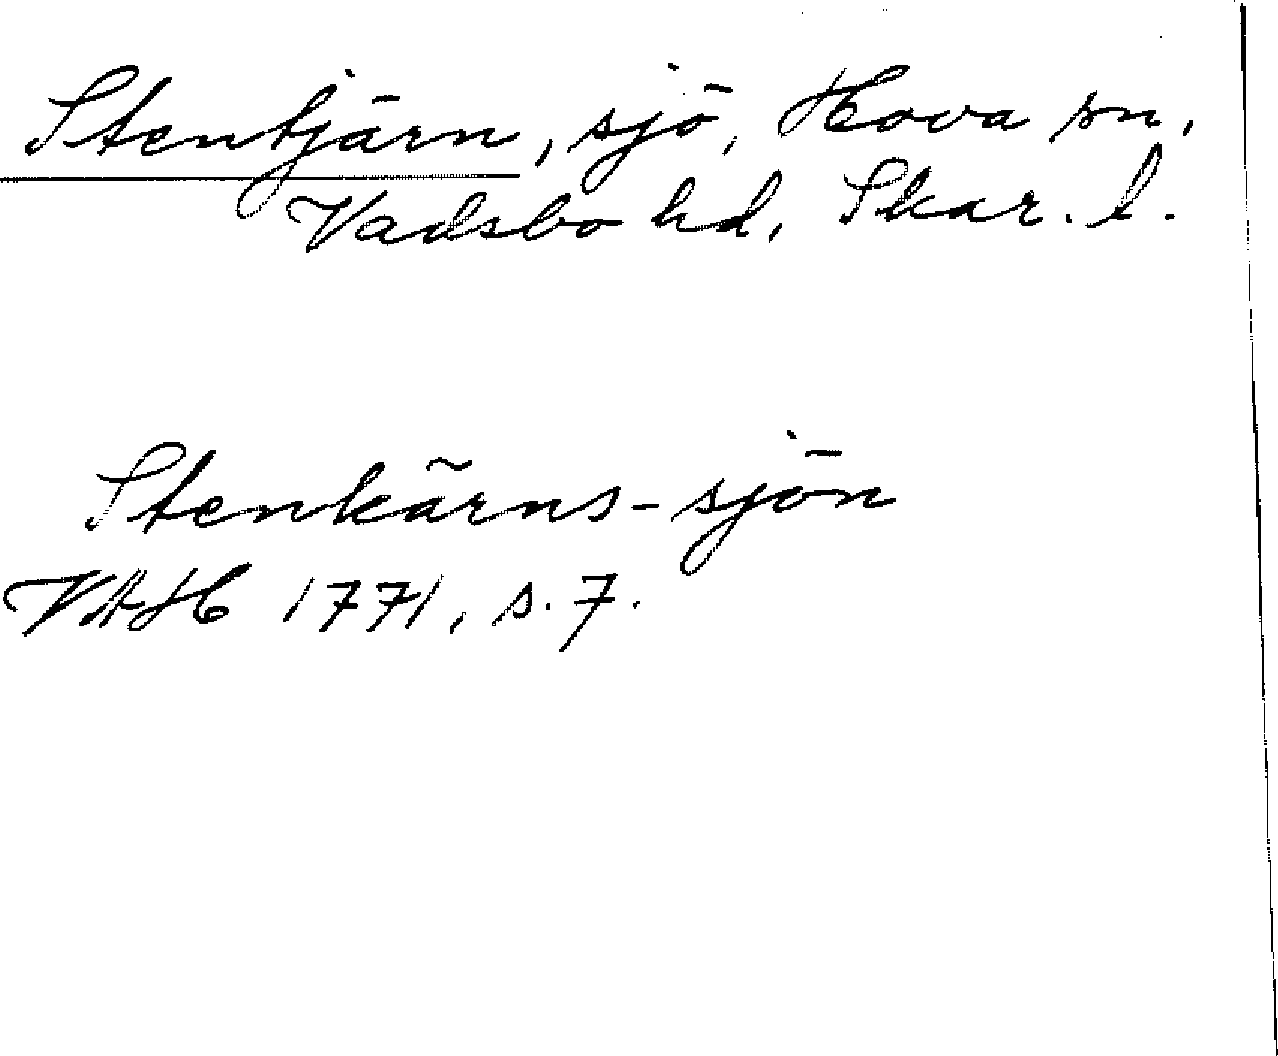 Stentjärn, sjö, Hova sn,
Vadsbo hd, Skar. l.
Stenkärns-sjön
VAH 1771, s. 7.